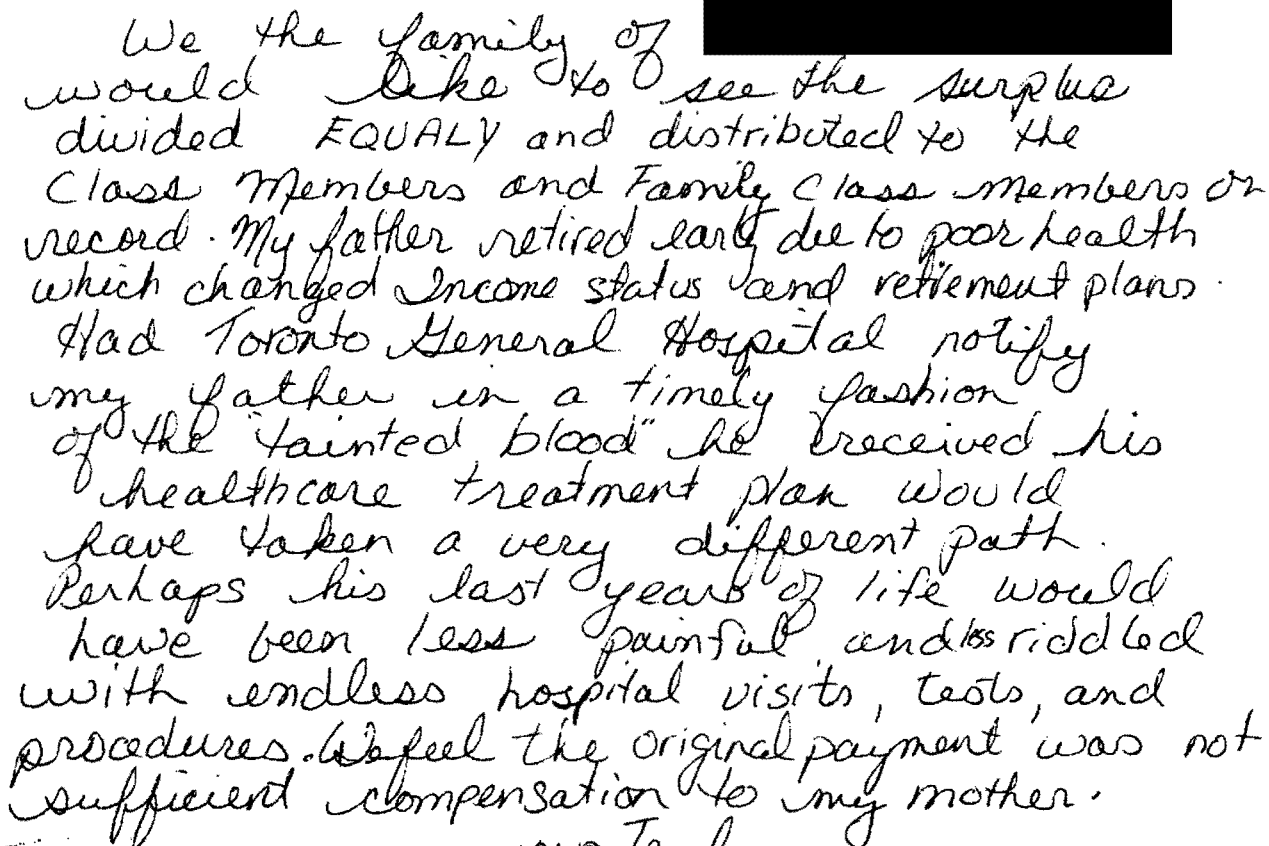 We the family of
would like to see the surplus
divided EQUALY and distributed to the
Class Members and Family Class members on
record. My father retired early due to poor health
which changed Income status and retirement plans.
Had Toronto General Hospital notify
my father in a timely fashion
of the "tainted blood" he received his
healthcare treatment plan would
have taken a very different path.
Perhaps his last years of life would
have been less painful and less riddled
with endless hospital visits, tests, and
procedures. We feel the original payment was not
sufficient compensation to my mother.